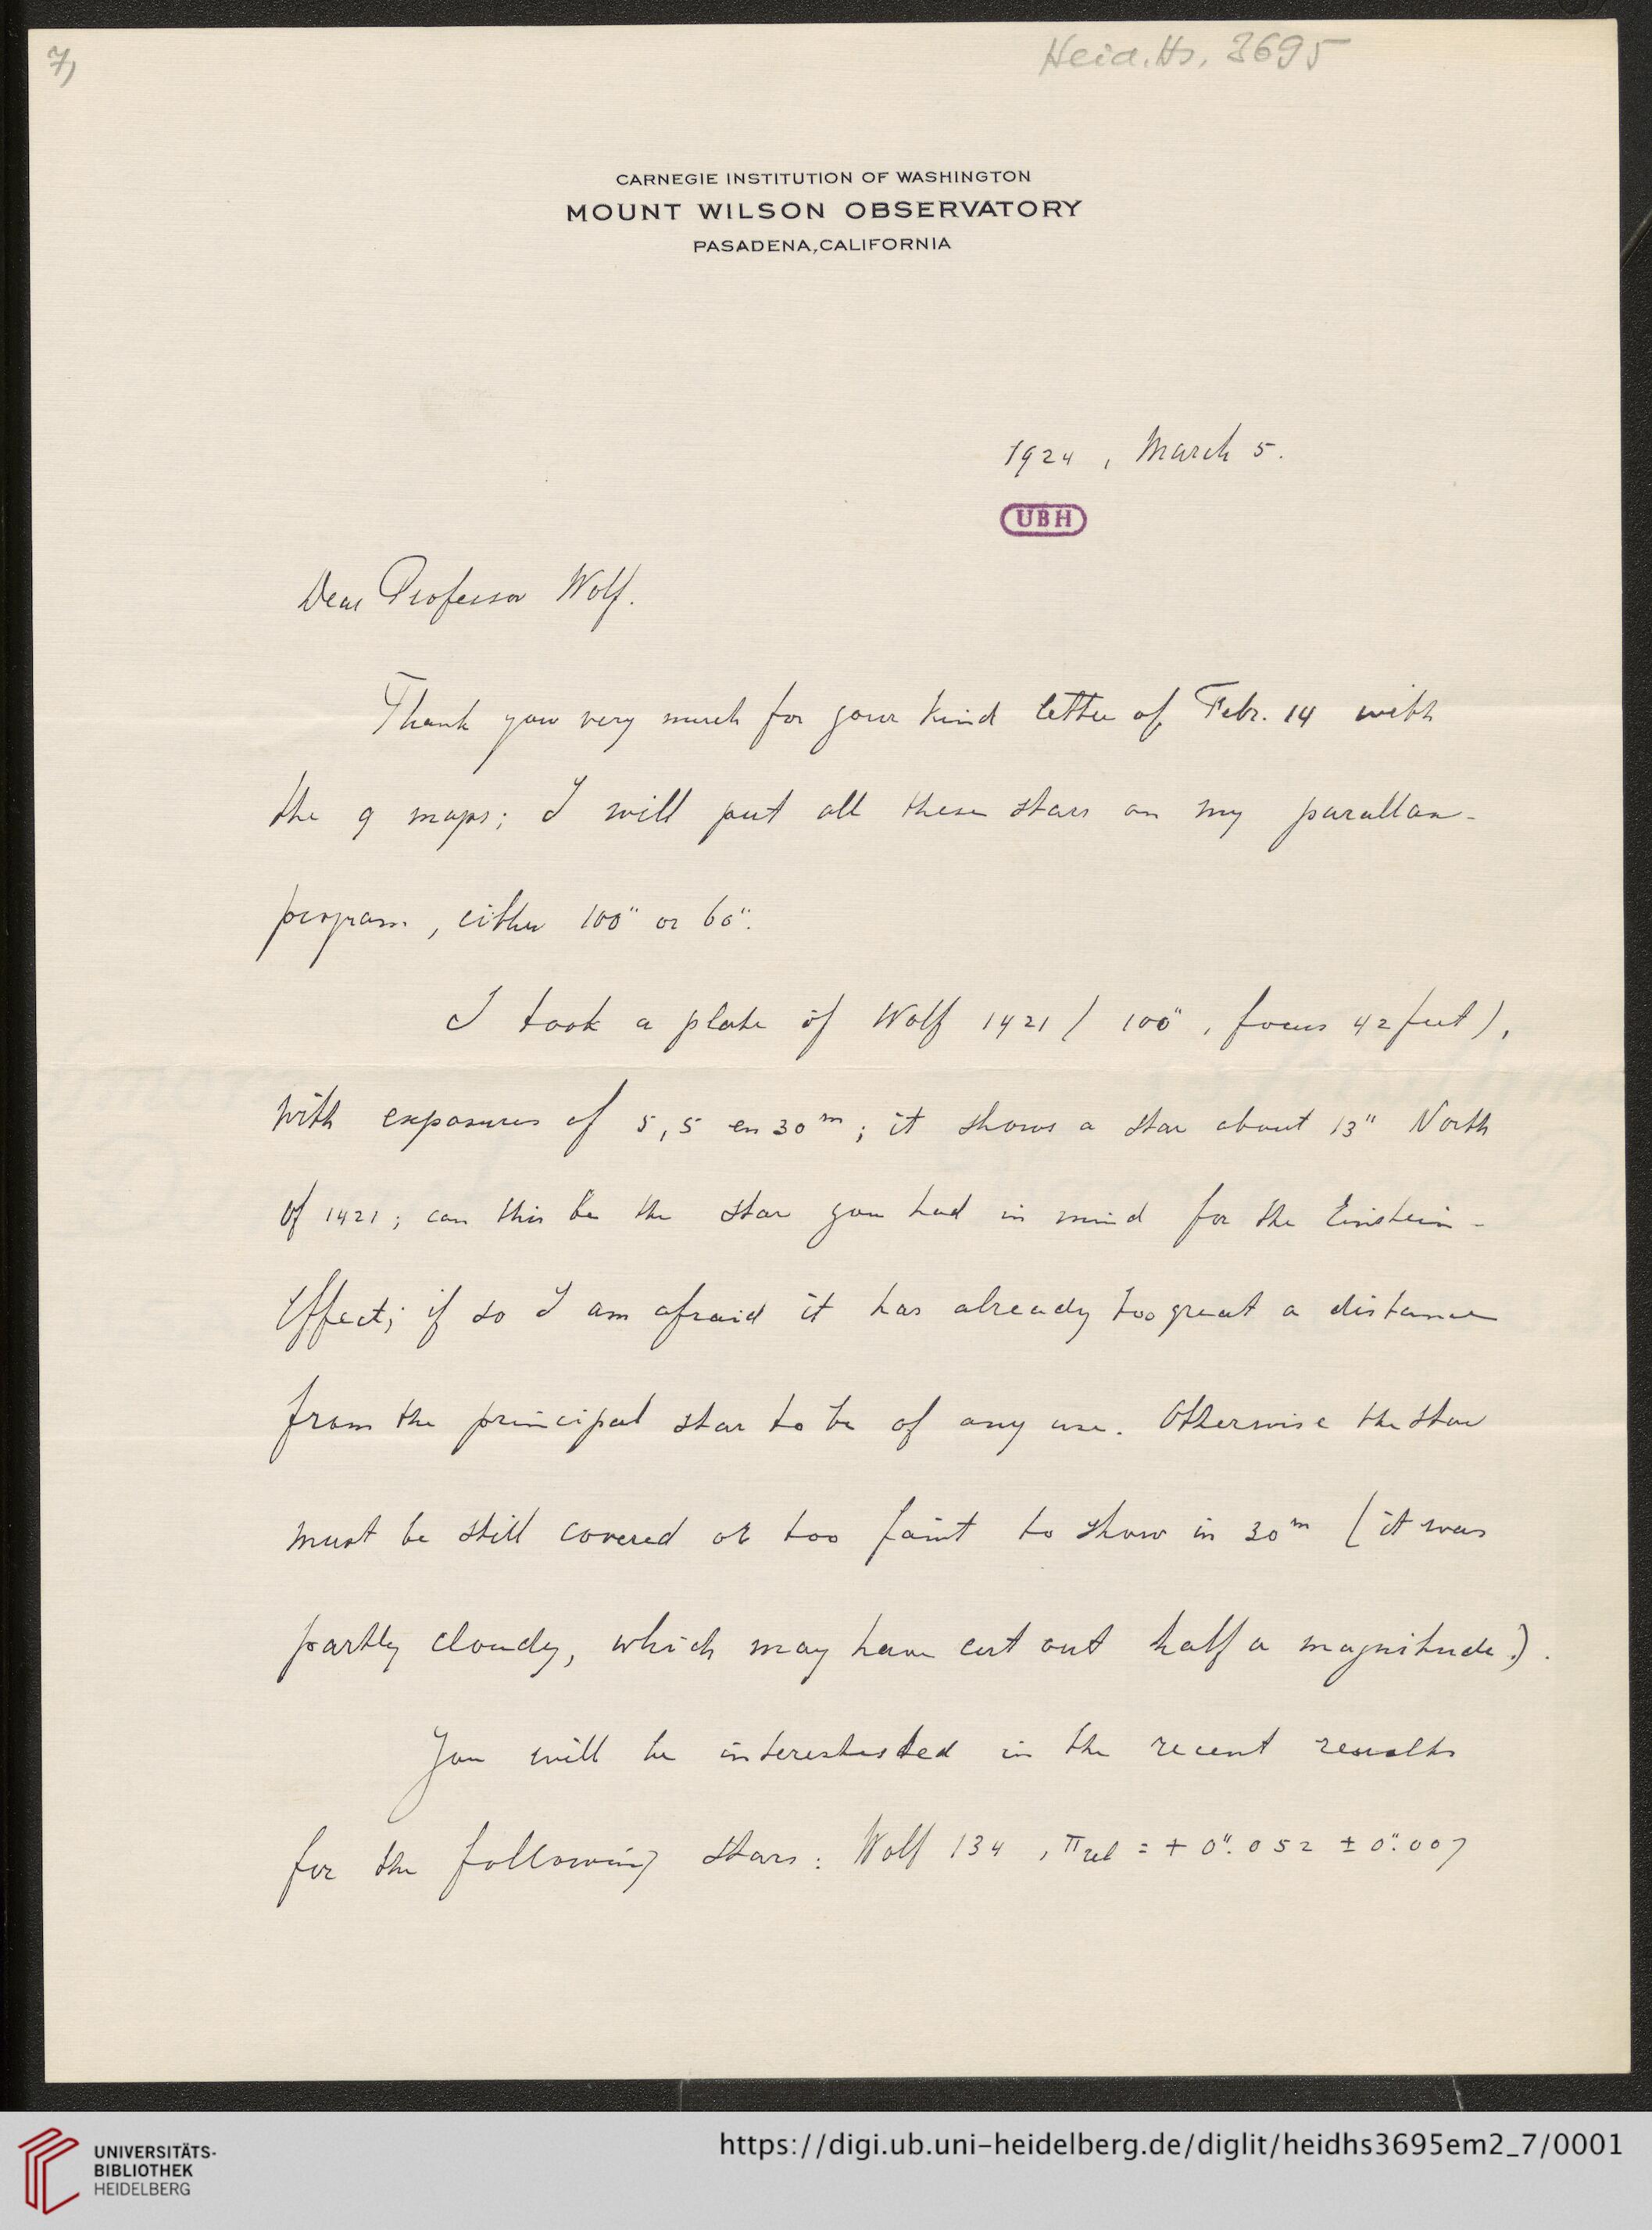 7)
Heid. Hs. 3695
CARNEGIE INSTITUTION OF WASHINGTON
MOUNT WILSON OBSERVATORY
PASADENA, CALIFORNIA
1924, March 5.
UBH
Dear Professor Wolf.
Thank you very much for your kind letter of Febr. 14 with
the 9 maps; I will put all these stars on my parallax-
program, either 100" or 60".
I took a plate of Wolf 1421 (100", focus 42 feet),
with exposures of 5, 5 en 30ᵐ; it shows a star about 13" North
of 1421; can this be the star you had in mind for the Einstein-
Effect; if so I am afraid it has already too great a distance
from the principal star to be of any use. Otherwise the star
must be still covered or too faint to show in 30ᵐ (it was
partly cloudy, which may have cut out half a magnitude.).
You will be interestested in the recent results
for the following stars: Wolf 134, π rel = + 0".052 ± 0".007
UNIVERSITÄTS-
BIBLIOTHEK
HEIDELBERG
https://digi.ub.uni-heidelberg.de/diglit/heidhs3695em2_7/0001